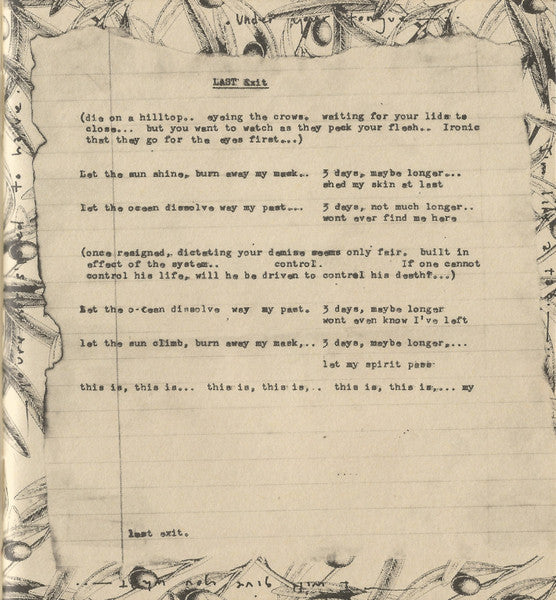 .Under your tongue
LAST Exit
(die on a hilltop.. eyeing the crows. waiting for your lids to
close... but you want to watch as they peck your flesh.. Ironic
that they go for the eyes first...)
Let the sun shine, burn away my mask.. 3 days, maybe longer...
shed my skin at last
let the ocean dissolve way my past... 3 days, not much longer..
wont ever find me here
(once resigned, dictating your demise seems only fair. built in
effect of the system.. control. If one cannot
control his life, will he be driven to control his death?...)
Let the o-cean dissolve way my past. 3 days, maybe longer
wont even know I've left
let the sun climb, burn away my mask,.. 3 days, maybe longer,...
let my spirit pass
this is, this is... this is, this is,.. this is, this is,... my
last exit.
I will give you what I
to have.